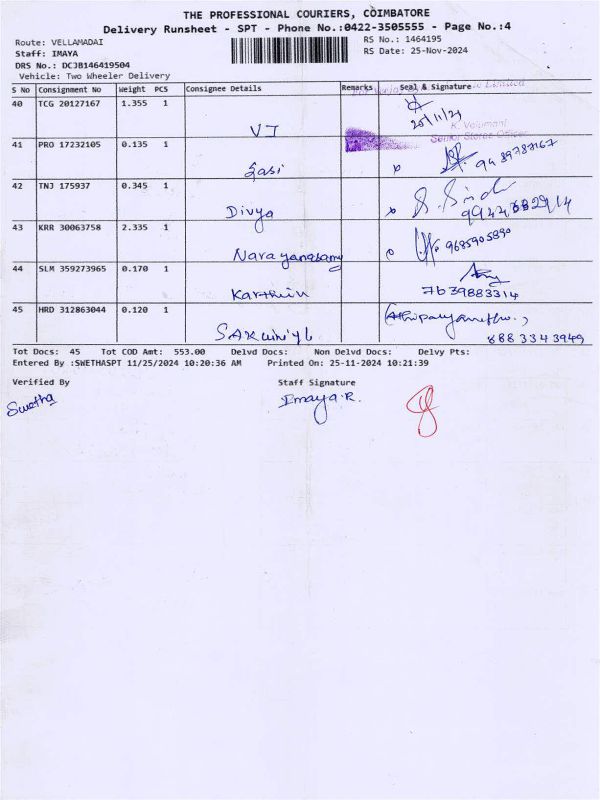 THE PROFESSIONAL COURIERS, COIMBATORE
Delivery Runsheet - SPT - Phone No.:0422-3505555 - Page No.:4
Route: VELLAMADAI
RS No.: 1464195
Staff: IMAYA
RS Date: 25-Nov-2024
DRS No.: DCJB146419504
Vehicle: Two Wheeler Delivery
S No Consignment No Weight PCS Consignee Details Remarks Seal & Signature
40 TCG 20127167 1.355 1 VJ 25/11/24
K. Velumani
Senior Stores Officer
41 PRO 17232105 0.135 1
42 TNJ 175937 0.345 1 Divya
43 KRR 30063758 2.335 1 Narayanasamy 9685905890
44 SLM 359273965 0.170 1 7639883314
45 HRD 312863044 0.120 1 8883343949
Tot Docs: 45 Tot COD Amt: 553.00 Delvd Docs: Non Delvd Docs: Delvy Pts:
Entered By :SWETHASPT 11/25/2024 10:20:36 AM Printed On: 25-11-2024 10:21:39
Verified By Staff Signature
Swetha Imaya.R.